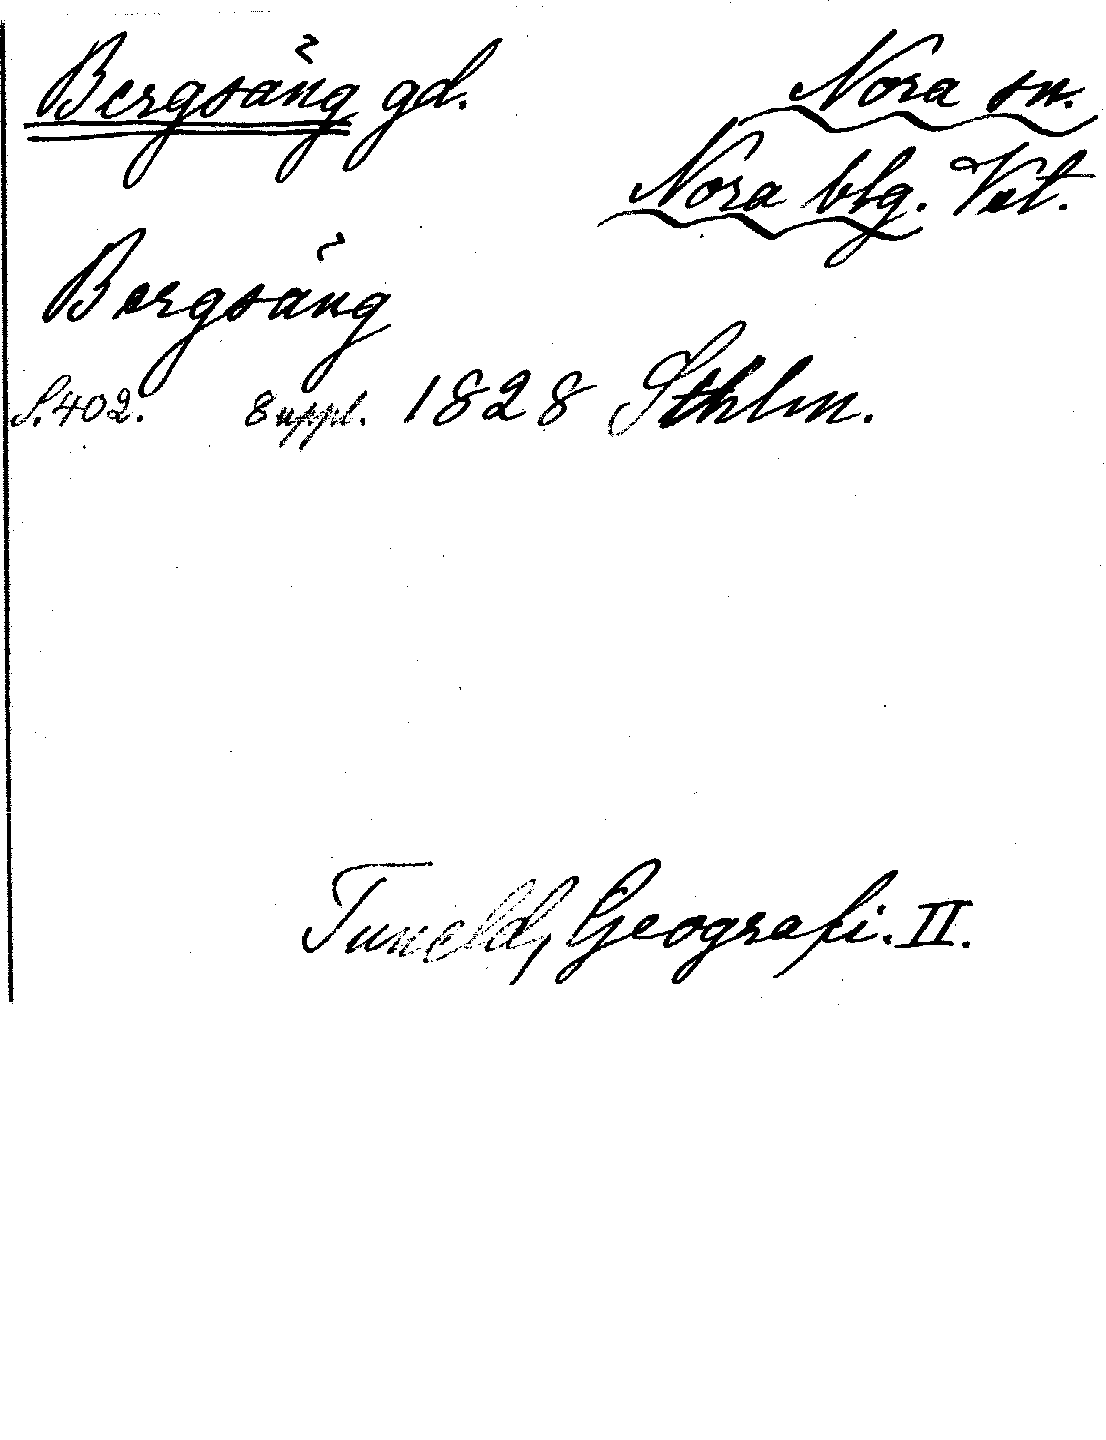 Bergsäng gd. Nora sn.
Nora blg. Vst.
Bergsäng
S. 402. 8 uppl. 1828 Sthlm.
Tuneld, Geografi. II.